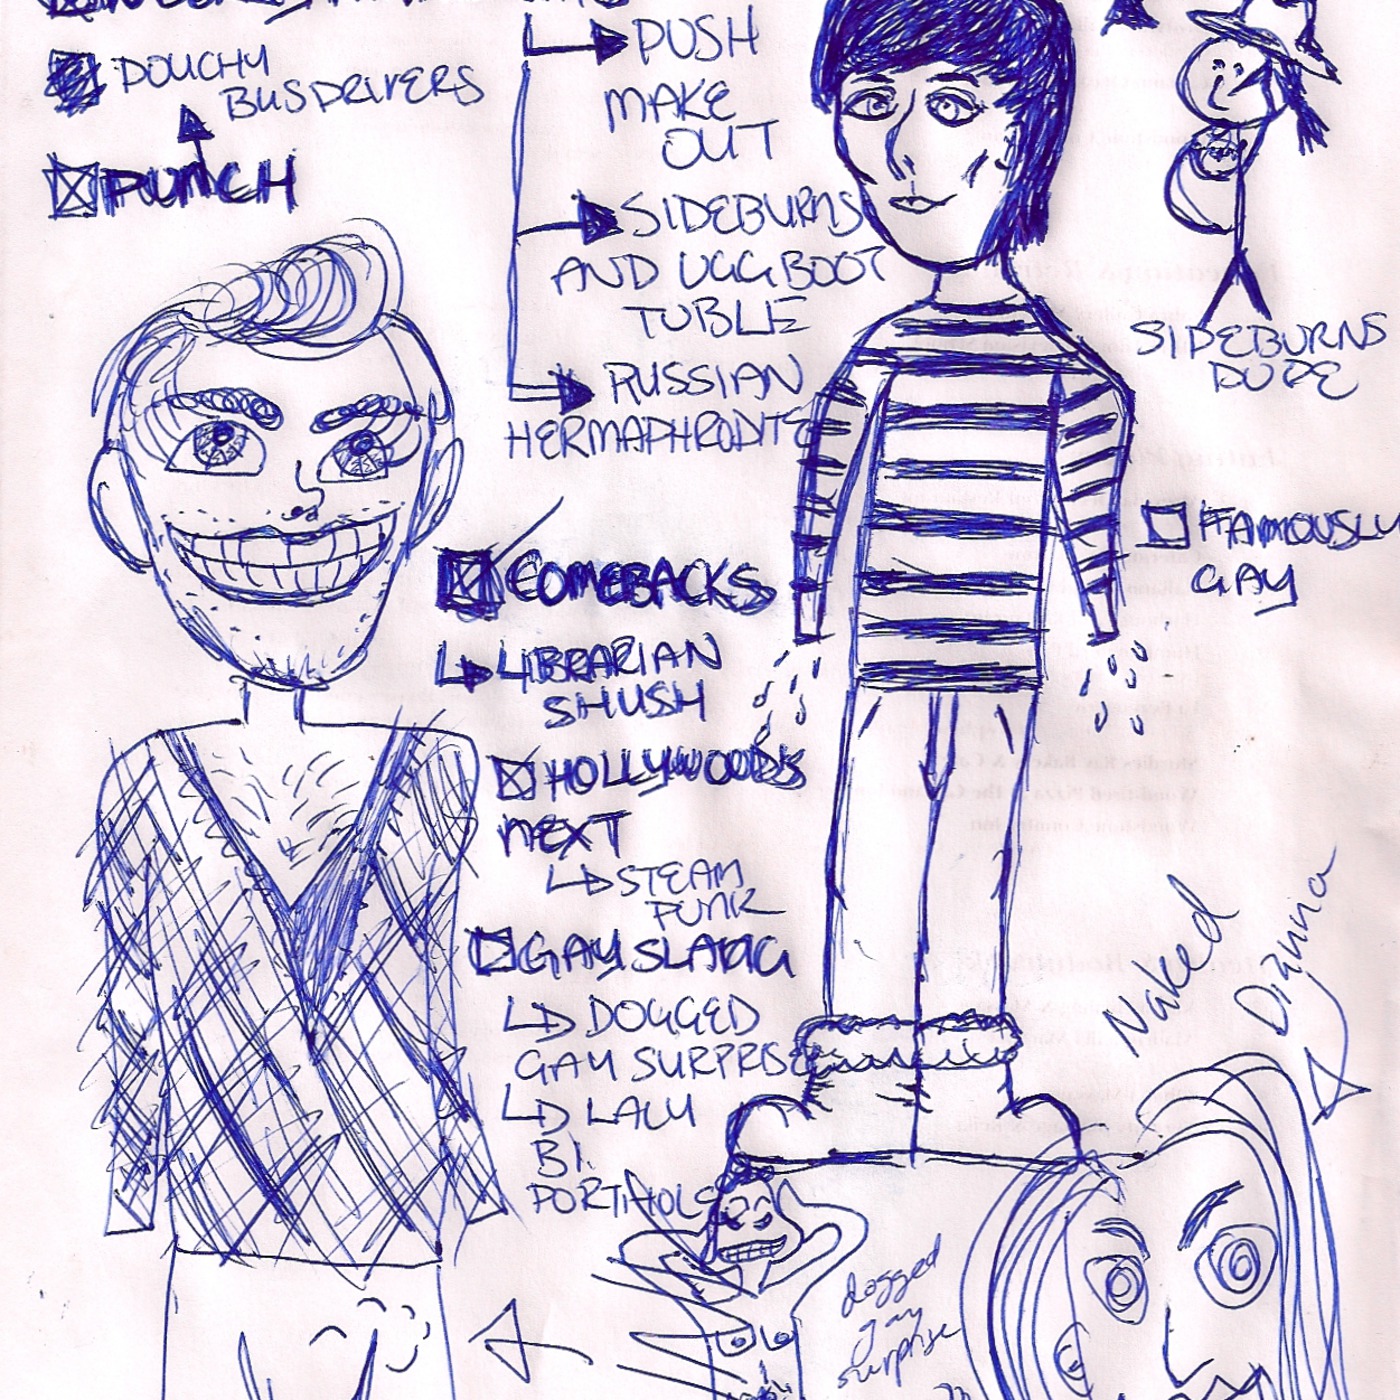 DOUCHY
BUSDRIVERS
PUNCH
PUSH
MAKE
OUT
SIDEBURNS
AND UGGBOOT
TUBLE
RUSSIAN
HERMAPHRODITE
SIDEBURNS
DUDE
FAMOUSLY
GAY
COMEBACKS
LIBRARIAN
SHUSH
HOLLYWOODS
NEXT
STEAM
PUNK
GAY SLANG
DOGGED
GAY SURPRISE
LALY
BI.
PORTIHOLS
Naked
dogged
gay
surprise